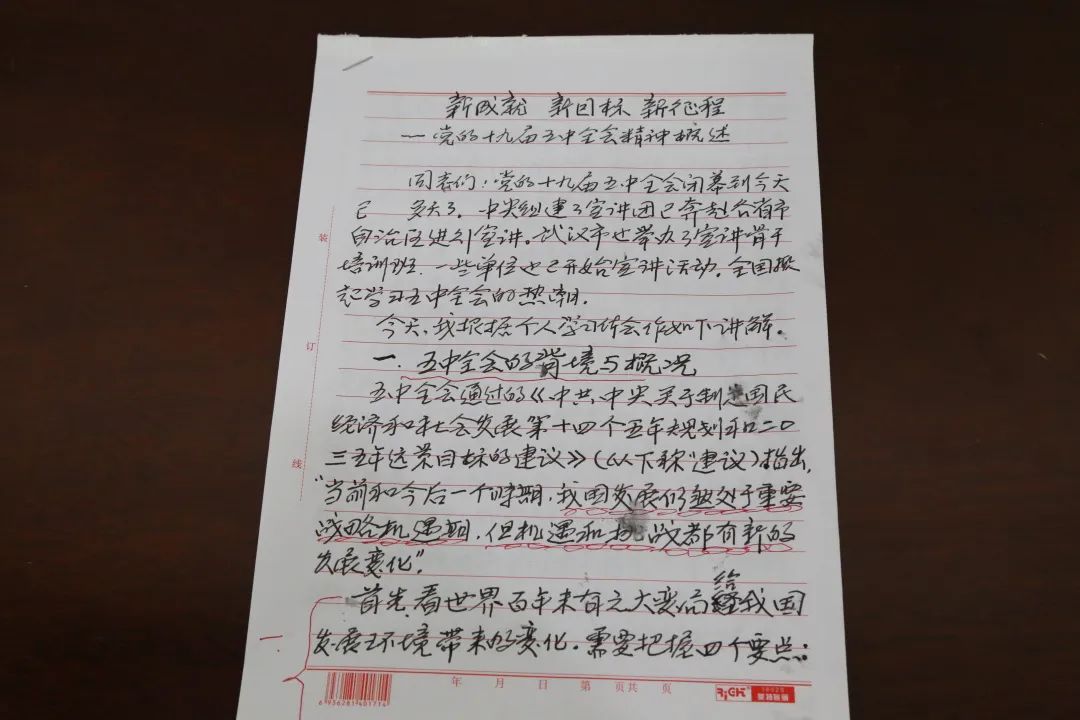 新成就 新目标 新征程
一党的十九届五中全会精神概述
同志们：党的十九届五中全会闭幕到今天
已 多天了。中央组建了宣讲团已奔赴各省市
自治区进行宣讲。武汉市也举办了宣讲骨干
培训班.一些单位也已开始宣讲活动。全国掀
起学习五中全会的热潮.
今天,我根据个人学习体会作如下讲解。
一.五中全会的背境与概况
五中全会通过的《中共中央关于制定国民
经济和社会发展第十四个五年规划和二〇
三五年远景目标的建议》(以下称"建议)指出,
"当前和今后一个时期,我国发展仍然处于重要
战略机遇期,但机遇和挑战都有新的
发展变化"
首先,看世界百年未有之大变局给我国
发展环境带来的变化。需要把握四个要点:
装
订
线
年 月 日 第 页共 页
6 936281 401714